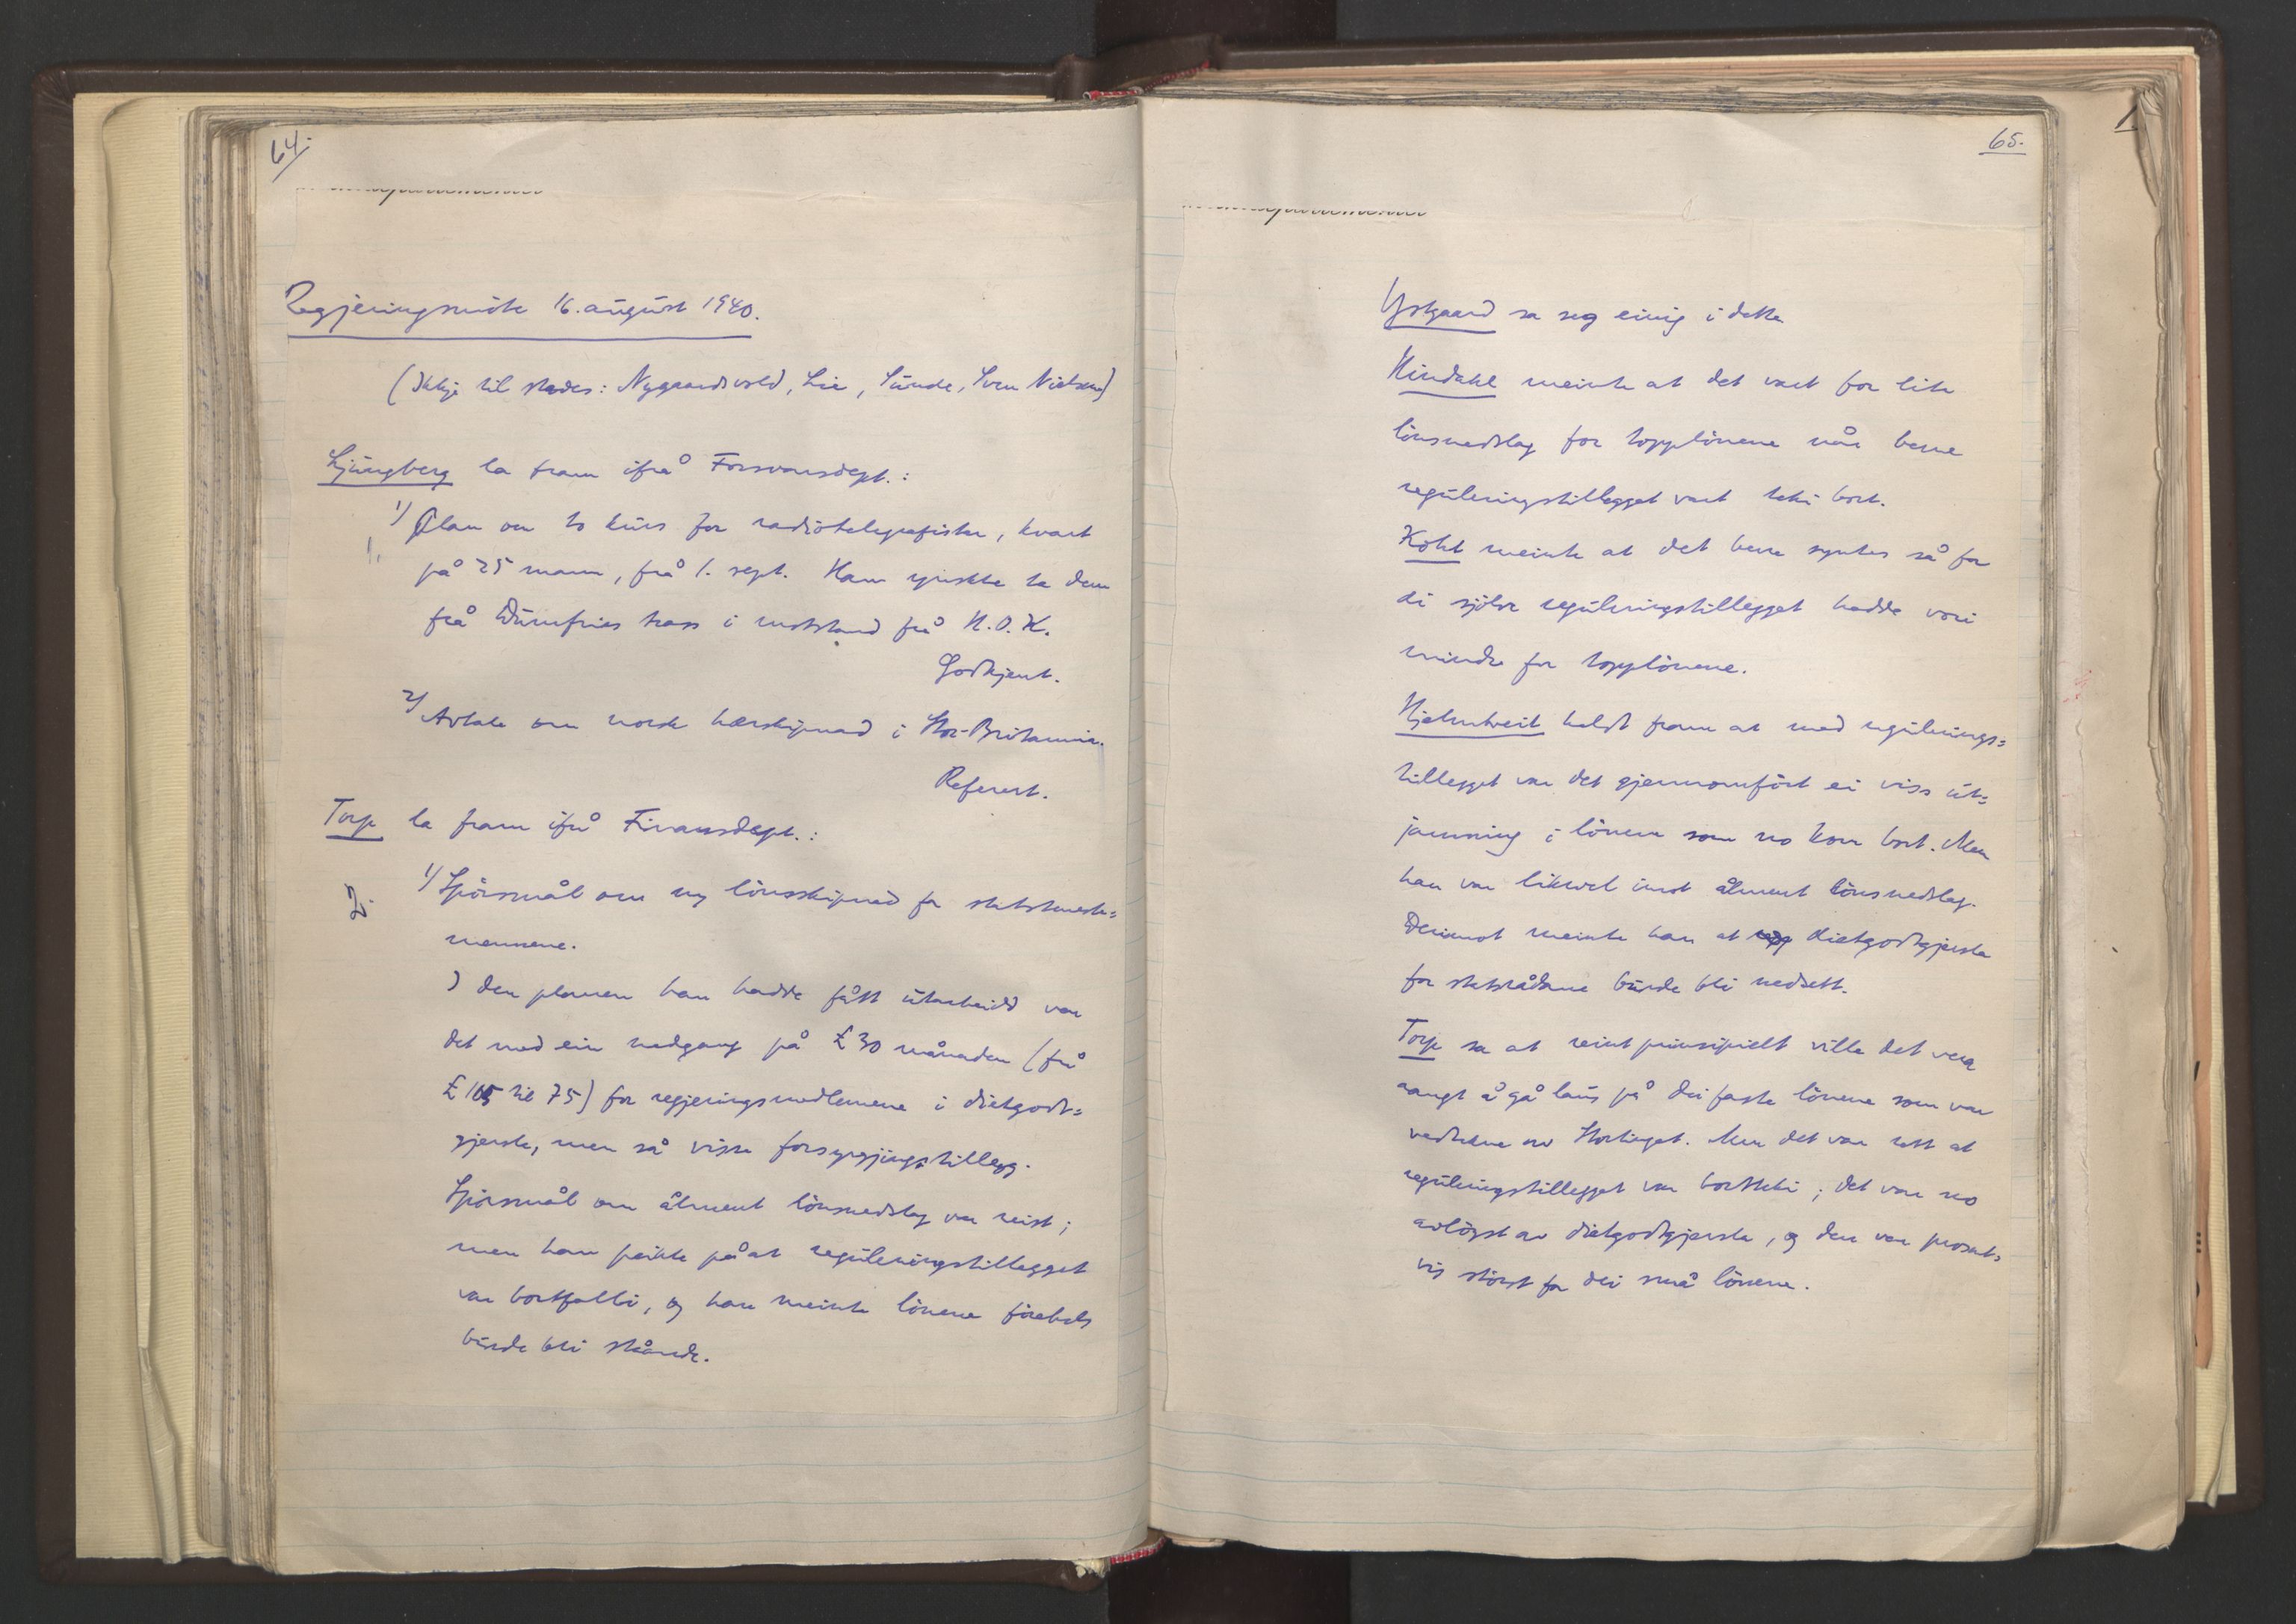 64.
Regjeringsmöte 16. august 1940.
(Ikkje til stades: Nygaardsvold, Lie, Sunde, Sven Nielsen)
Ljungberg la fram ifrå Forsvarsdept.:
1) Plan om to kurs for radiotelegrafistar, kvart
1.
på 25 mann, frå 1. sept. Han ynskte ta dem
frå Dumfries trass i motstand frå H.O.K.
Godkjent.
2) Avtale om norsk hærskipnad i Stor-Britannia.
Referert.
Torp la fram ifrå Finansdept.:
2.
1) Spörsmål om ny lönsskipnad for statsteneste=
mennene.
I den planen han hadde fått utarbeidd var
det med ein nedgang på £ 30 månaden (frå
£ 105 til 75) for regjeringsmedlemene i dietgodt=
gjersle, men så visse forsyrgjingstillegg.
Spörsmål om ålment lönsnedslag var reist;
men han peikte på at reguleringstillegget
var bortfalli, og han meinte lönene förebels
burde bli stånde.
65.
Ystgaard sa seg einig i dette
Hindahl meinte at det vart for lite
lönsnedslag for topplönene når berre
reguleringstillegget vart teki bort.
Koht meinte at det berre syntes så for
di sjölve reguleringstillegget hadde vori
mindre for topplönene.
Hjelmtveit heldt fram at med regulerings=
tillegget var det gjennomfört ei viss ut=
jamning i lönene som no kom bort. Men
han var likevel imot ålment lönsnedslag.
Derimot meinte han at dietgodtgjersla
for statsrådane burde bli nedsett.
Torp sa at reint prinsipielt ville det vera
rangt å gå laus på dei faste lönene som var
vedtekne av Stortinget. Men det var rett at
reguleringstillegget var bortteki; det var no
avlöyst av dietgodtgjersla, og den var prosent=
vis störst for dei små lönene.